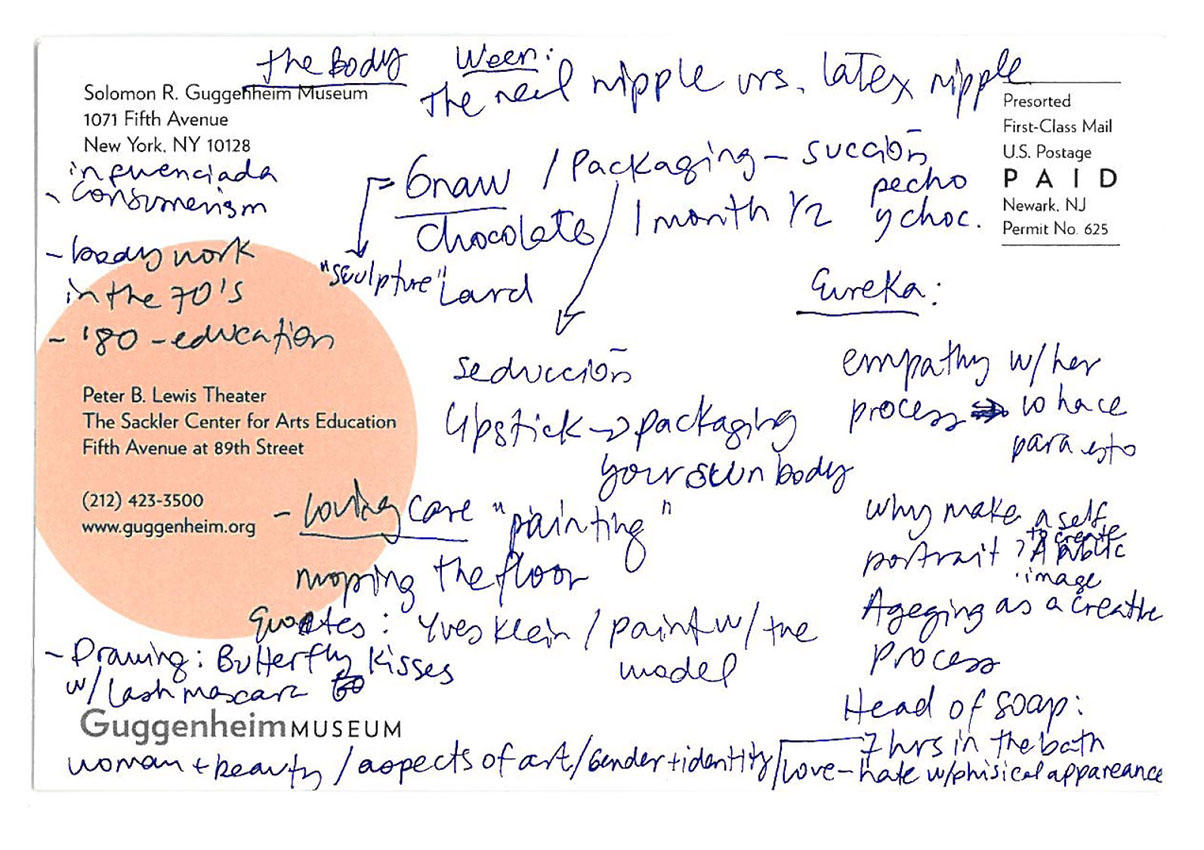 the Body
Ween:
the real nipple vrs. latex nipple
Solomon R. Guggenheim Museum
1071 Fifth Avenue
New York, NY 10128
Presorted
First-Class Mail
U.S. Postage
PAID
Newark, NJ
Permit No. 625
infuenciada
- consumerism
- body work
in the 70's
- '80 - education
Gnaw / Packaging - succión
pecho
y choc.
chocolate / 1 month 1/2
"sculpture" Lard
seducción
Lipstick → packaging
your own body
Eureka:
empathy w/ her
process → lo hace
para esto
Peter B. Lewis Theater
The Sackler Center for Arts Education
Fifth Avenue at 89th Street
(212) 423-3500
www.guggenheim.org
- Loving care "painting"
moping the floor
Quotes: Yves Klein / paint w/ the
model
why make a self
portrait? to create
A public
image
Ageging as a creative
process
- Drawing: Butterfly Kisses
w/ lash mascara
Head of soap:
7 hrs in the bath
Guggenheim MUSEUM
woman + beauty / aspects of art / Gender + identity / Love-hate w/ phisical appareance